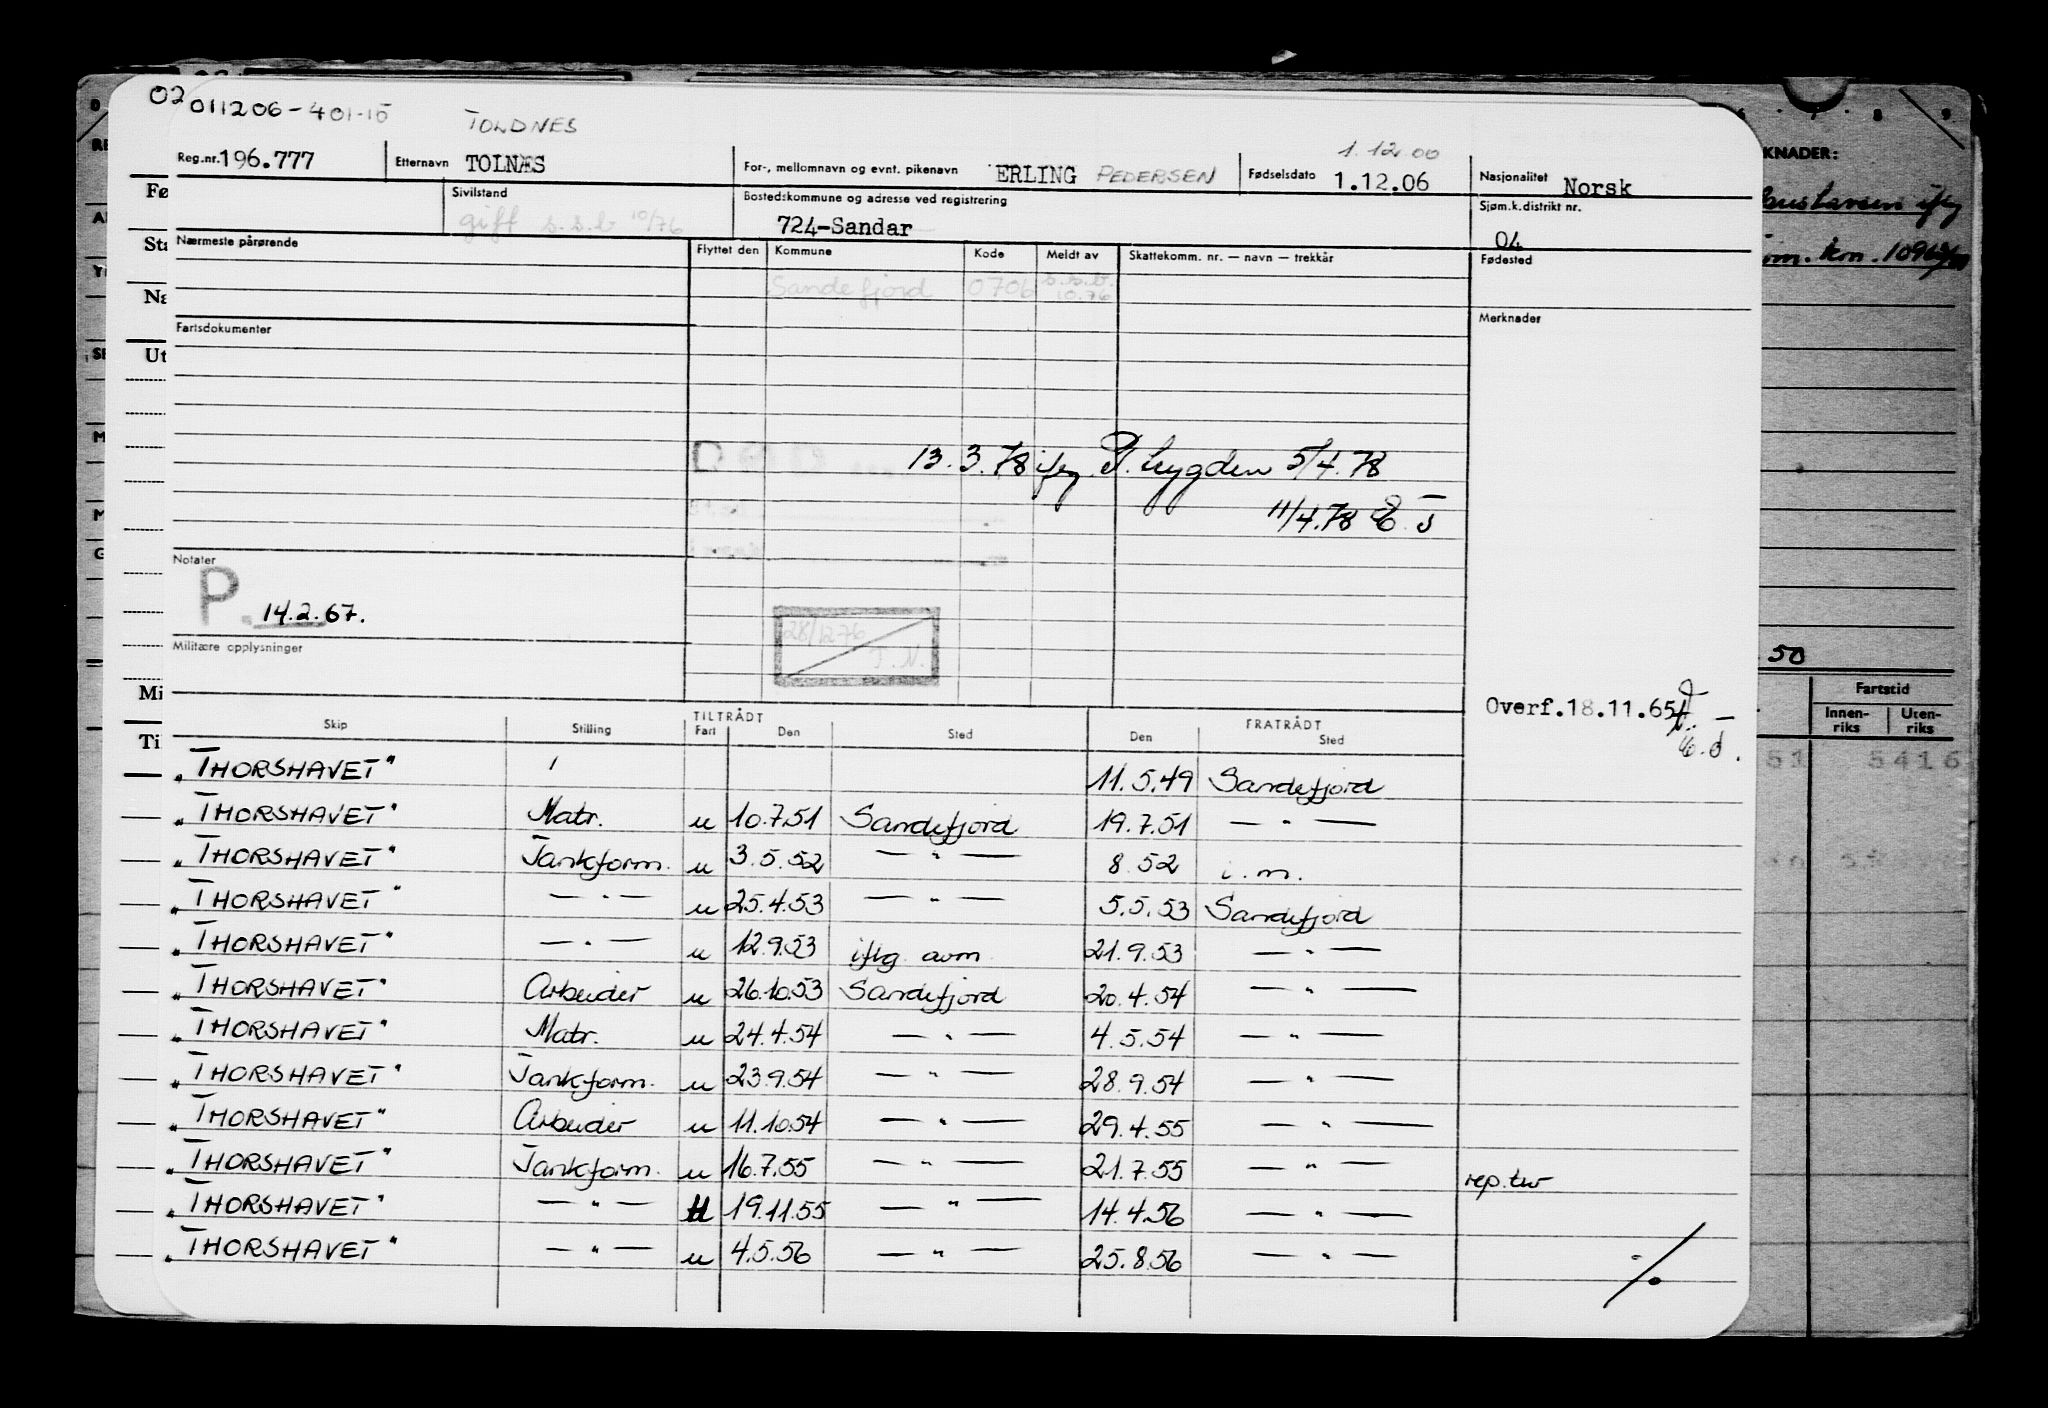 02 011206-401-15
TOLDNES
1.12.00
Reg.nr. 196.777 Etternavn TOLNÆS For-, mellomnavn og evnt. pikenavn ERLING PEDERSEN Fødselsdato 1.12.06 Nasjonalitet Norsk
Sivilstand Bostedskommune og adresse ved registrering Sjøm.k.distrikt nr.
gift s.s.b 10/76 724-Sandar 04
Nærmeste pårørende Flyttet den Kommune Kode Meldt av Skattekomm. nr. — navn — trekkår Fødested
Sandefjord 0706 s.s.b. 10.76
Fartsdokumenter Merknader
13.3.78 iflg. P. trygden 5/4.78
11/4.78
Notater
P. 14.2.67.
28/12-76 T.N.
Militære opplysninger
Overf.18.11.65
Skip Stilling TILTRÅDT Fart Den Sted FRATRÅDT Den Sted
"THORSHAVET" 11.5.49 Sandefjord
"THORSHAVET" Matr. u 10.7.51 Sandefjord 19.7.51 — " —
"THORSHAVET" Tankform. u 3.5.52 — " — 8 52 i.m.
"THORSHAVET" — " — u 25.4.53 — " — 5.5.53 Sandefjord
"THORSHAVET" — " — u 12.9.53 iflg. avm 21.9.53 — " —
"THORSHAVET" Arbeider u 26.10.53 Sandefjord 20.4.54 — " —
"THORSHAVET" Matr. u 24.4.54 — " — 4.5.54 — " —
"THORSHAVET" Tankform. u 23.9.54 — " — 28.9.54 — " —
"THORSHAVET" Arbeider u 11.10.54 — " — 29.4.55 — " —
"THORSHAVET" Tankform. u 16.7.55 — " — 21.7.55 — " — rep.tur
"THORSHAVET" — " — 19.11.55 — " — 14.4.56 — " —
"THORSHAVET" — " — u 4.5.56 — " — 25.8.56 — " —
%
Fø
Sta
Na
Ut
Mi
Ti
KNADER:
50
Fartstid
Innen-riks Uten-riks
51 5416